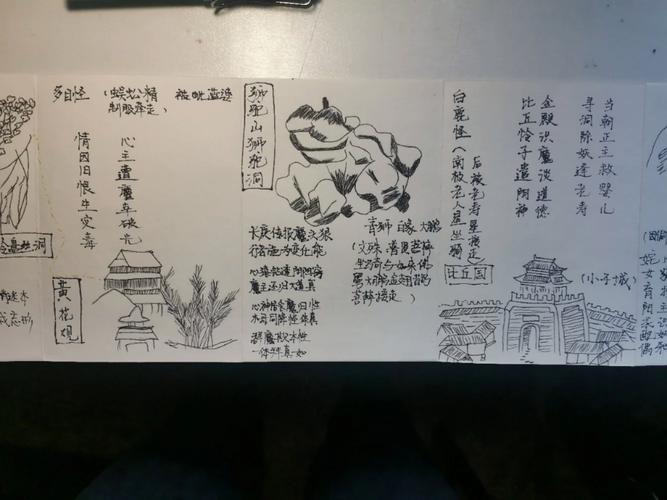 丝洞
情迷本
戒忘形
多目怪（蜈蚣精 被毗蓝婆
制服牵走）
心主遭魔幸破光
情因旧恨生灾毒
黄花观
狮驼山狮驼洞
长庚传报魔头狠
行者施为变化能
心猿钻透阴阳窍
魔王还归大道真
心神居舍魔归性
木母同降怪体真
群魔欺本性
一体拜真如
青狮 白象 大鹏
（文殊、普贤菩萨
坐骑与如来佛
舅大鹏金翅雕
菩萨接走）
当朝正主救婴儿
寻洞除妖逢老寿
金殿识魔谈道德
比丘怜子遣阴神
后被老寿星接走
白鹿怪（南极老人星坐骑
比丘国
（小子城）
姹女育阳求配偶